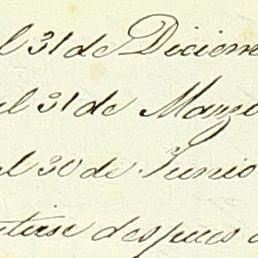 l 31 de Diciem
al 31 de Marzo
al 30 de Junio
tirse despues